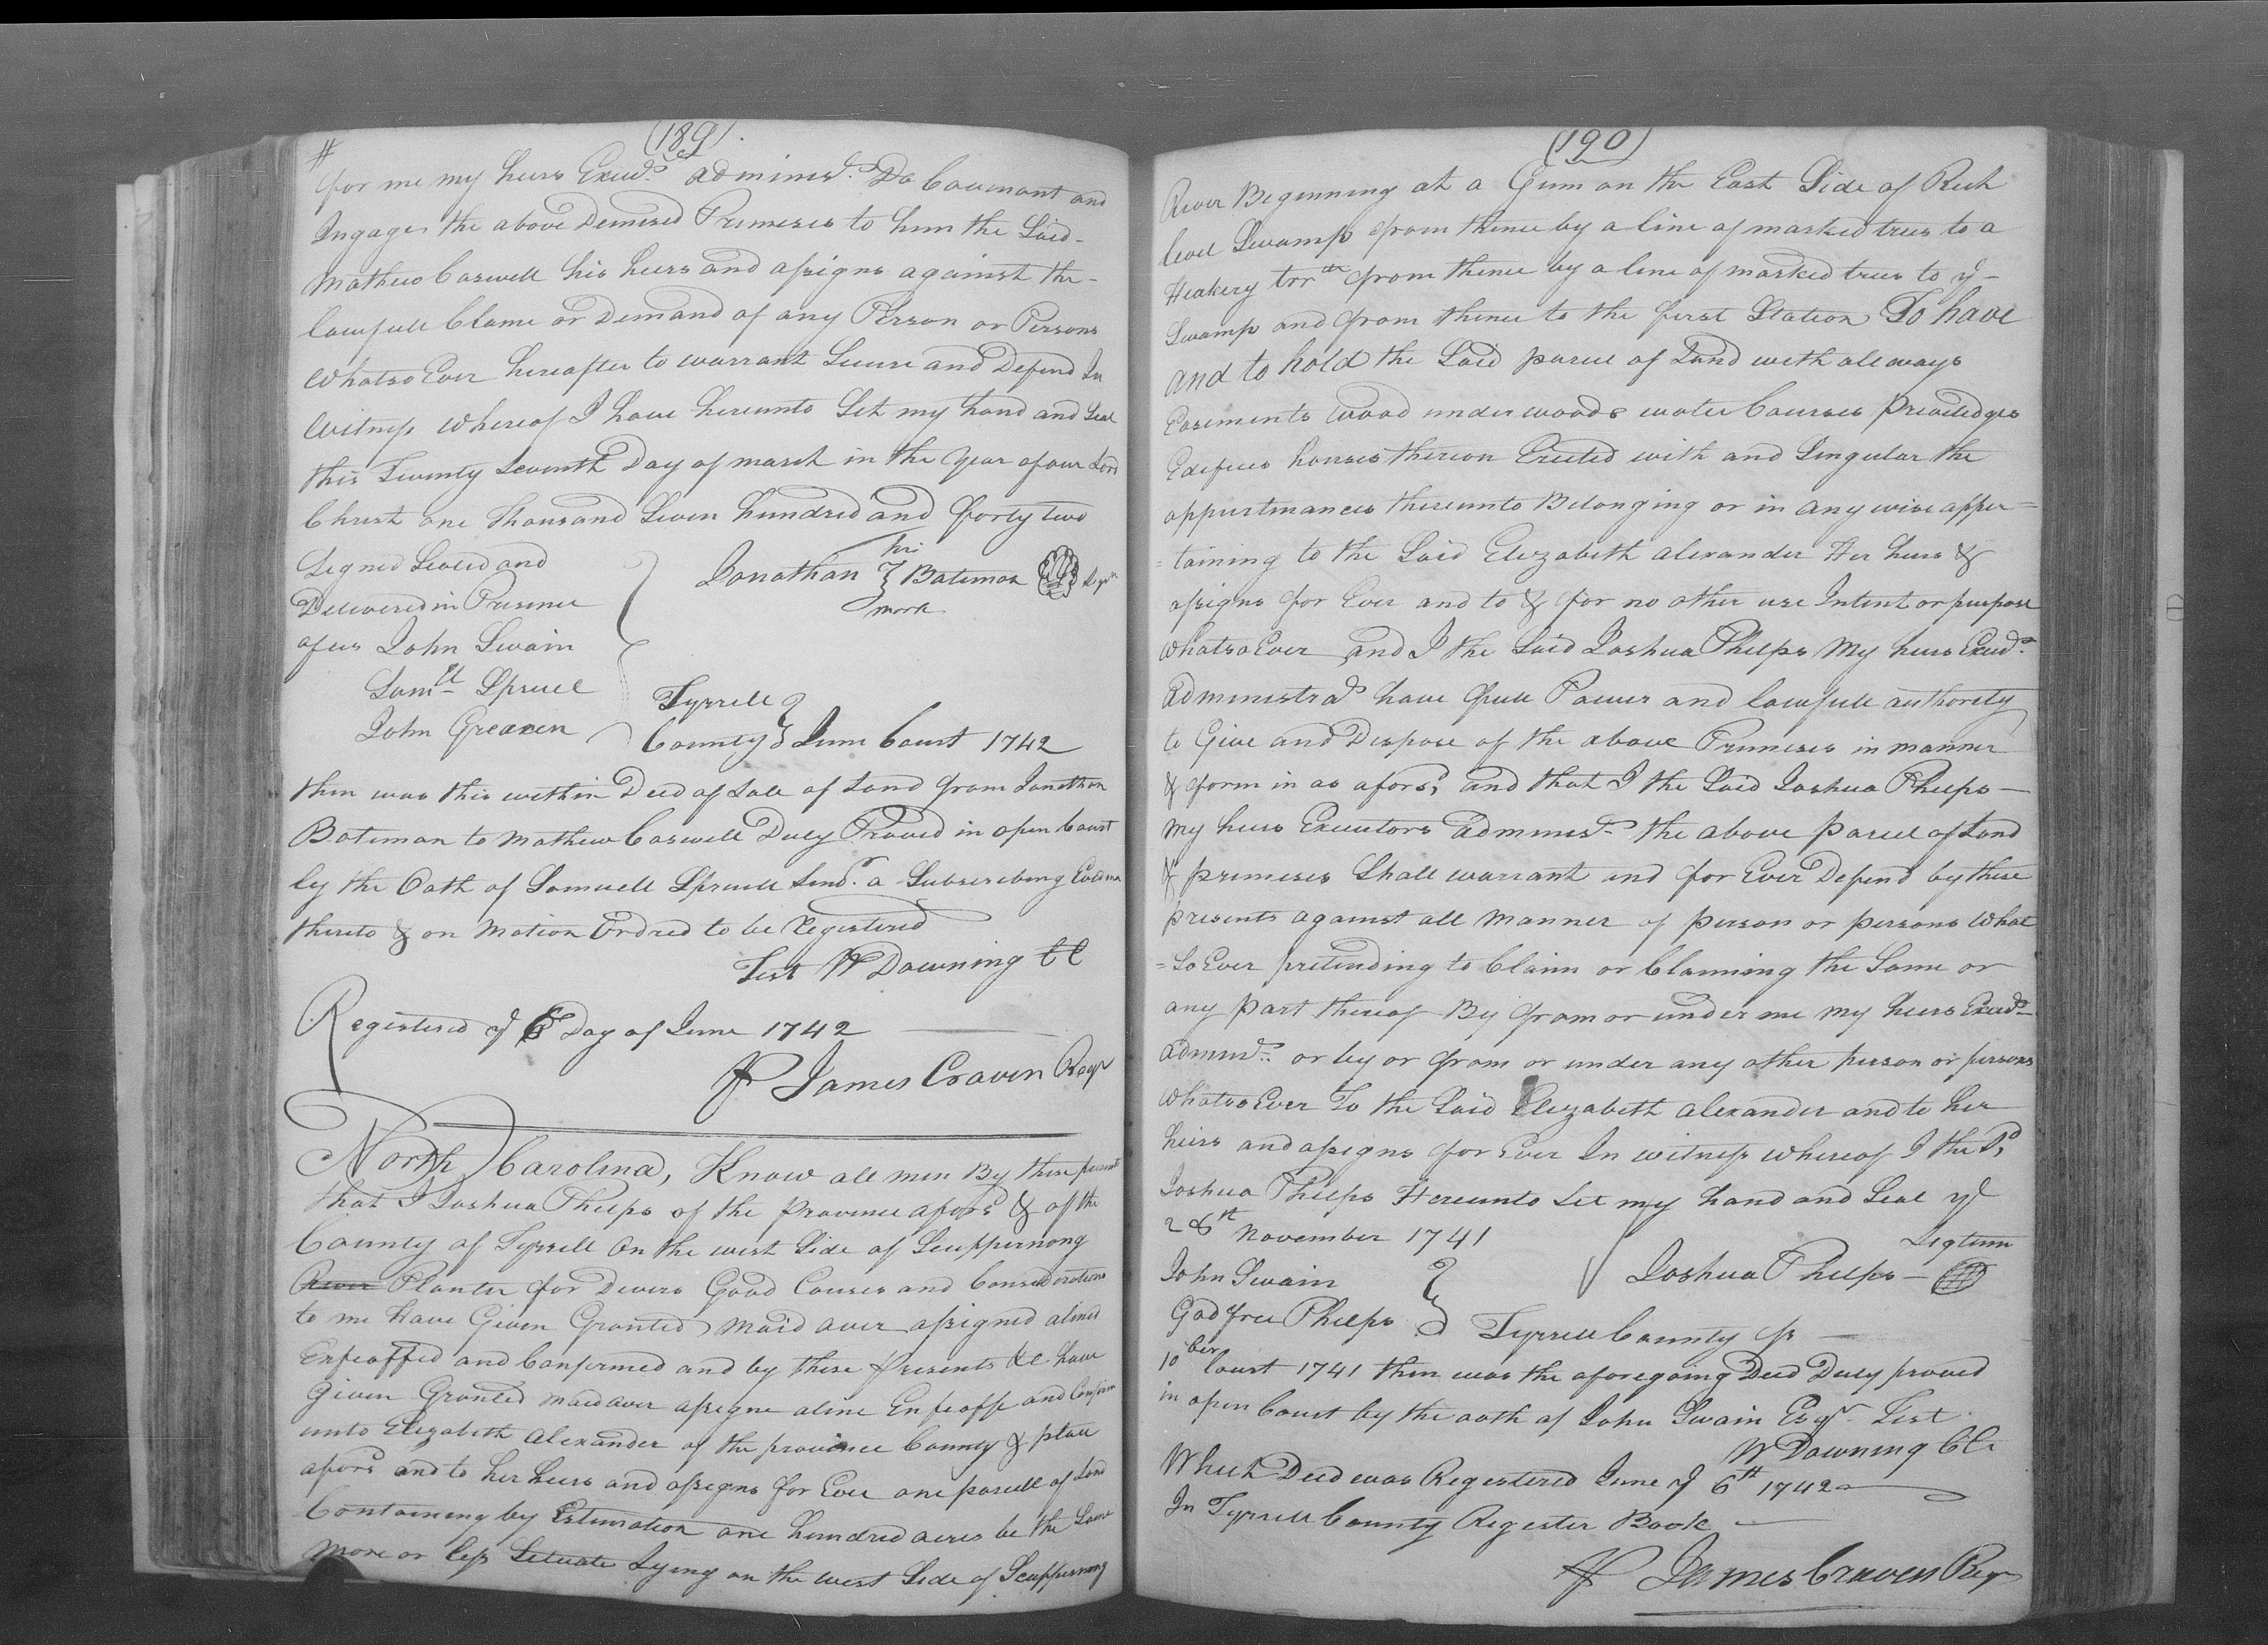 (189)
for me my heirs Execrs. adminisrs. Do Covenant and
Ingages the above Demised Premeses to him the Said
Mathew Caswell his heirs and assigns against the
lawfull Clame or Demand of any Person or Persons
Whatso Ever hereafter to warrant Secure and Defend In
Witness Whereof I have hereunto Set my hand and Seal
this Twenty Seventh Day of march in the Year of our Lord
Christ one Thousand Seven hundred and forty two
Signed Sealed and
Delivered in Presence
of us John Swain
Samll Spruel
John Greaven
his
Jonathan Bateman
mark
Tyrrell
County June Court 1742
then was this within Deed of Sale of Land from Jonathan
Bateman to Mathew Caswell Duly Proved in open Court
by the Oath of Samuell Spruell Senr. a Subscribing Evidence
thereto & on Motion Ordred to be Registered
Test W Downing CC
Registered ye 6 Day of June 1742
P James Craven Regr
North Carolina, Know all men By these presents
that I Joshua Phelps of the Province aforsd & of the
County of Tyrrell On the west Side of Scuppernong
River Planter for Devers Good Causes and Considerations
to me have Given Granted maid over assigned alined
Enfeoffed and Confirmed and by these presents &c have
Given Granted maid over assigne aline Enfeoffe and Confirm
unto Elezabeth Alexander of the province County & place
aforsd and to her heirs and assigns for Ever one parcell of Land
Containing by Estimation one hundred acres be the Same
more or less Setuate Lying on the west Side of Scuppernong
(190)
River Beginning at a Gum on the East Side of Rich
level Swamp from thence by a line of marked trees to a
Heakery tree from thence by a line of marked trees to ye
Swamp and from thence to the first Station To have
and to hold the Said parcel of Land with all ways
Easments Wood under woods water Courses Previledges
Edefices houses thereon Erected with and Singular the
appurtinances thereunto Belonging or in any wise apper=
=taining to the Said Elezabeth alexander Her heirs &
assigns for Ever and to & for no other use Intent or purpose
whatso Ever and I the Said Joshua Phelps My heirs Execrs.
administrars have full Power and lawfull authorety
to Give and Dispose of the above Premeses in manner
& form in as aforsd, and that I the Said Joshua Phelps
my heirs Executors adminesrs the above parcel of Land
& premeses Shall warrant and for Ever Defend by these
presents against all manner of person or persons What
=So Ever pretending to Claim or Claiming the Same or
any part thereof By from or under me my heirs Execrs
adminrs or by or from or under any other person or persons
whatso Ever To the Said Elezabeth alexander and to her
heirs and assigns for Ever In witness whereof I the Sd
Joshua Phelps Hereunto Set my hand and Seal ye
26th November 1741
Segtum
John Swain
Joshua Phelps
Godfree Phelps
Tyrrell County ss
10ber Court 1741 then was the aforegoing Deed Duly proved
in open Court by the oath of John Swain Esqr Test
W Downing ClC
Which Deed was Registered June ye 6th 1742
In Tyrrell County Regester Book
P James Craven Regr